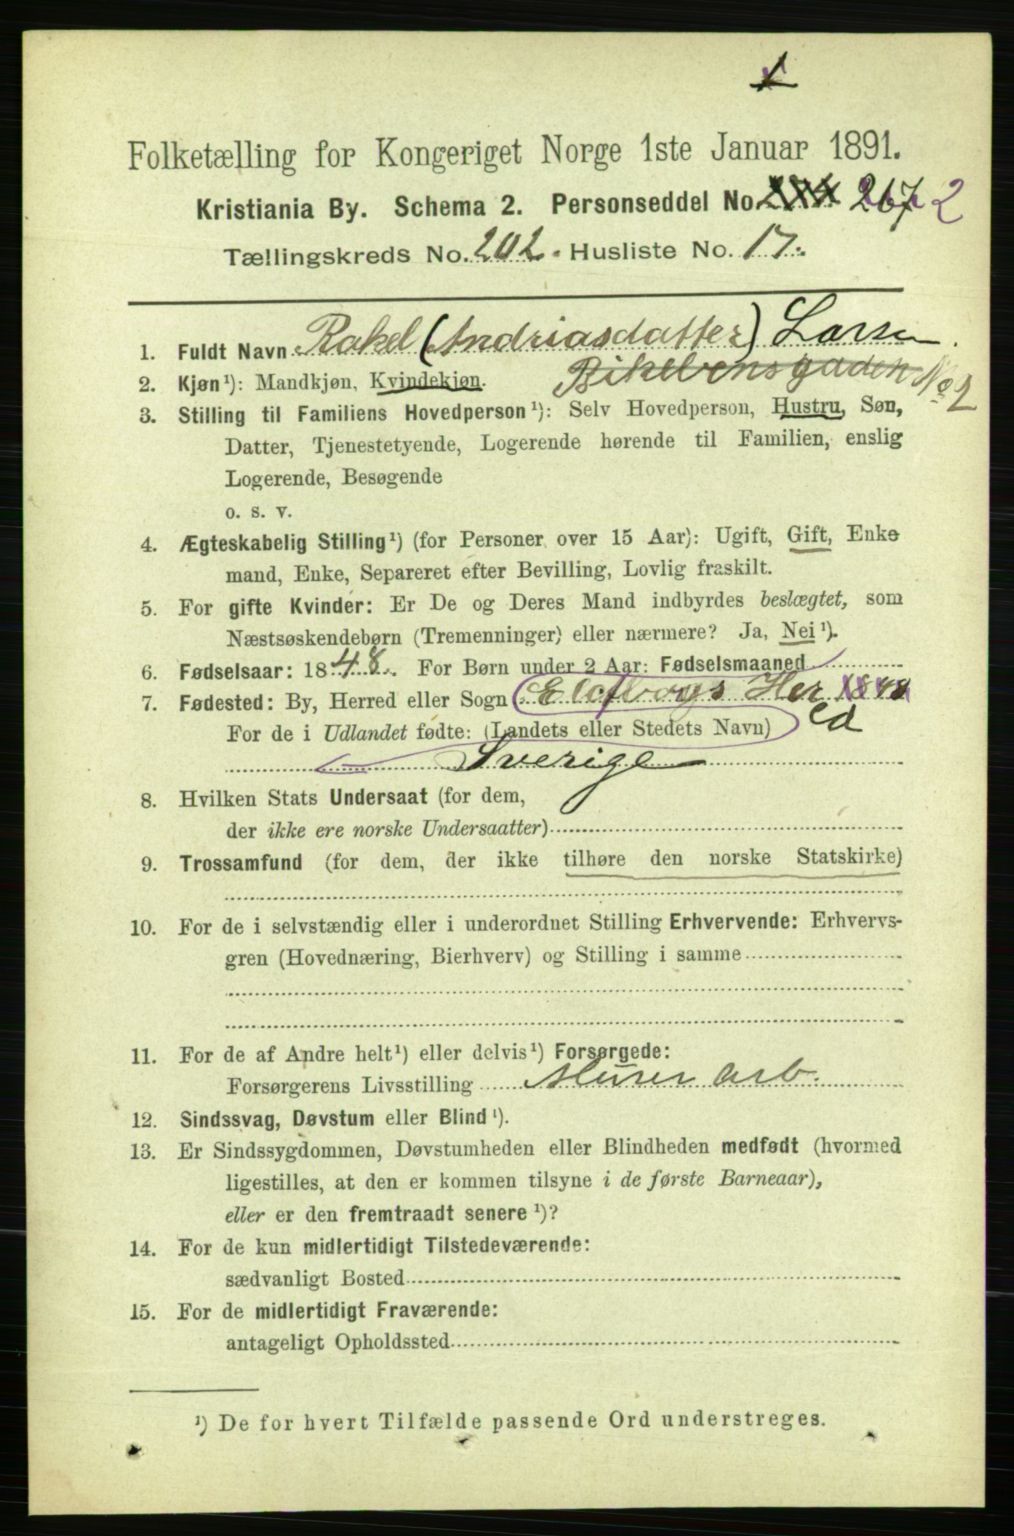 1
Folketælling for Kongeriget Norge 1ste Januar 1891.
Kristiania By. Schema 2. Personseddel No. 267 2
Tællingskreds No. 202. Husliste No. 17.
1. Fuldt Navn Rakel (Andriasdatter) Larsen.
2. Kjøn¹): Mandkjøn, Kvindekjøn. Birkebensgaden No 2
3. Stilling til Familiens Hovedperson¹): Selv Hovedperson, Hustru, Søn,
Datter, Tjenestetyende, Logerende hørende til Familien, enslig
Logerende, Besøgende
o. s. v.
4. Ægteskabelig Stilling¹) (for Personer over 15 Aar): Ugift, Gift, Enke-
mand, Enke, Separeret efter Bevilling, Lovlig fraskilt.
5. For gifte Kvinder: Er De og Deres Mand indbyrdes beslægtet, som
Næstsøskendebørn (Tremenninger) eller nærmere? Ja, Nei¹).
6. Fødselsaar: 1848. For Børn under 2 Aar: Fødselsmaaned
7. Fødested: By, Herred eller Sogn Elofborgs Her
For de i Udlandet fødte: (Landets eller Stedets Navn) ed
Sverige
8. Hvilken Stats Undersaat (for dem,
der ikke ere norske Undersaatter)
9. Trossamfund (for dem, der ikke tilhøre den norske Statskirke)
10. For de i selvstændig eller i underordnet Stilling Erhvervende: Erhvervs-
gren (Hovednæring, Bierhverv) og Stilling i samme
11. For de af Andre helt¹) eller delvis¹) Forsørgede:
Forsørgerens Livsstilling Murer arb.
12. Sindssvag, Døvstum eller Blind¹).
13. Er Sindssygdommen, Døvstumheden eller Blindheden medfødt (hvormed
ligestilles, at den er kommen tilsyne i de første Barneaar),
eller er den fremtraadt senere¹)?
14. For de kun midlertidigt Tilstedeværende:
sædvanligt Bosted
15. For de midlertidigt Fraværende:
antageligt Opholdssted
¹) De for hvert Tilfælde passende Ord understreges.